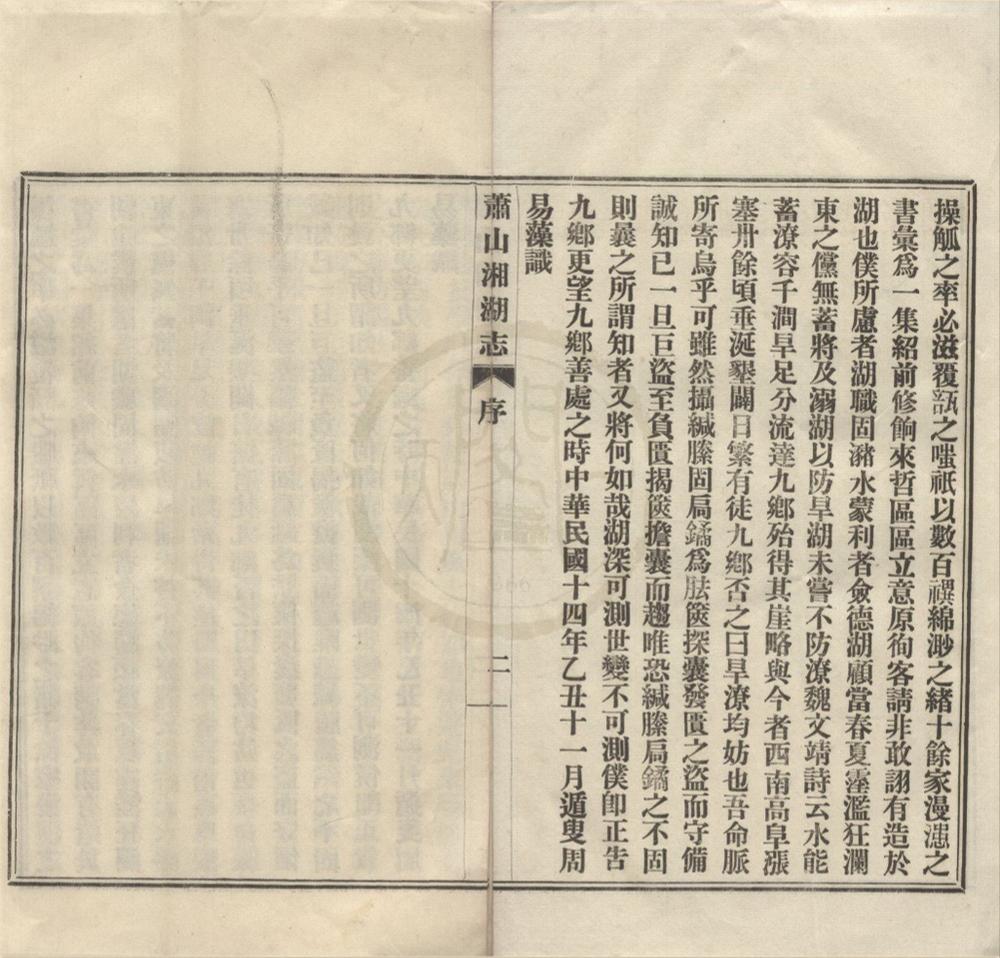 操觚之率必滋覆瓿之嗤祇以數百禩綿渺之緒十餘家漫漶之
書彙爲一集紹前修餉來哲區區立意原徇客請非敢詡有造於
湖也僕所慮者湖職固瀦水蒙利者僉德湖顧當春夏霪濫狂瀾
東之儻無蓄將及溺湖以防旱湖未嘗不防潦魏文靖詩云水能
蓄潦容千澗旱足分流達九鄉殆得其崖略與今者西南高阜漲
塞卅餘頃垂涎墾闢日繁有徒九鄉否之曰旱潦均妨也吾命脈
所寄烏乎可雖然攝緘縢固扃鐍爲胠篋探囊發匱之盜而守備
誠知已一旦巨盜至負匱揭篋擔囊而趨唯恐緘縢扃鐍之不固
則曩之所謂知者又將何如哉湖深可測世變不可測僕卽正告
九鄉更望九鄉善處之時中華民國十四年乙丑十一月遁叟周
易藻識
蕭山湘湖志 序 二